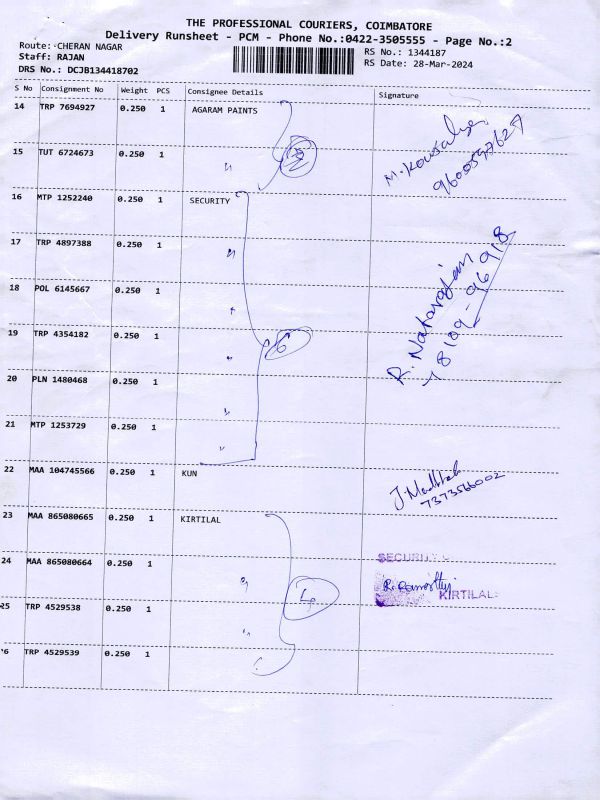 THE PROFESSIONAL COURIERS, COIMBATORE
Delivery Runsheet - PCM - Phone No.:0422-3505555 - Page No.:2
Route: CHERAN NAGAR
RS No.: 1344187
Staff: RAJAN
RS Date: 28-Mar-2024
DRS No.: DCJB134418702
S No Consignment No Weight PCS Consignee Details Signature
14 TRP 7694927 0.250 1 AGARAM PAINTS
15 TUT 6724673 0.250 1 " 2
M. Kousalya
16 MTP 1252240 0.250 1 SECURITY
17 TRP 4897388 0.250 1 "
18 POL 6145667 0.250 1 "
19 TRP 4354182 0.250 1 " 6
R. Natarajan
78109-96918
20 PLN 1480468 0.250 1 "
21 MTP 1253729 0.250 1 "
22 MAA 104745566 0.250 1 KUN
7373566002
23 MAA 865080665 0.250 1 KIRTILAL
24 MAA 865080664 0.250 1 " 4
SECURITY
KIRTILAL
25 TRP 4529538 0.250 1 "
26 TRP 4529539 0.250 1